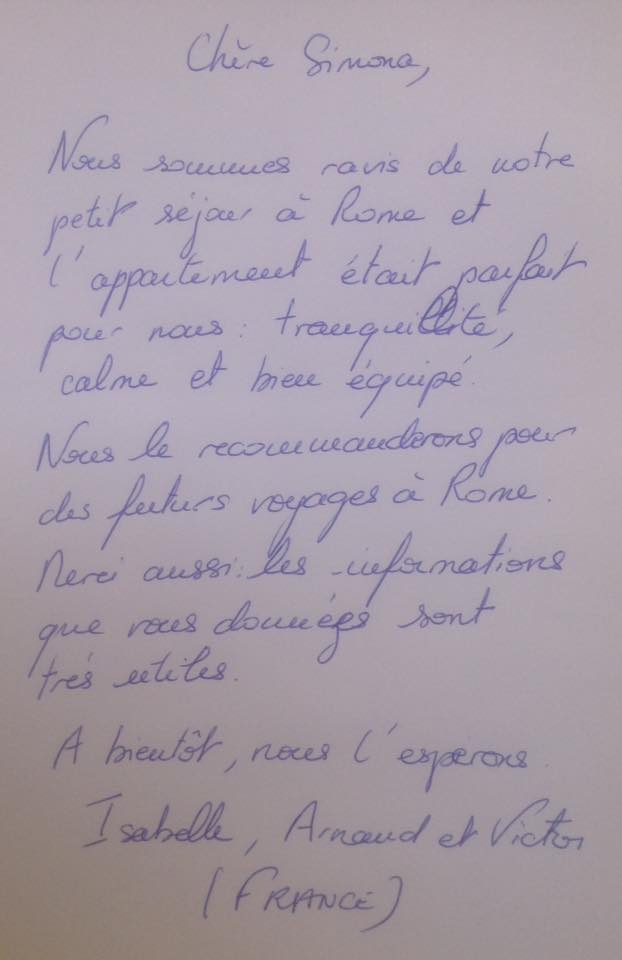 Chère Simona,
Nous sommes ravis de notre
petit séjour à Rome et
l'appartement était parfait
pour nous : tranquillité,
calme et bien équipé.
Nous le recommanderons pour
des futurs voyages à Rome.
Merci aussi : les informations
que vous données sont
très utiles.
A bientôt, nous l'espérons
Isabelle, Arnaud et Victor
(FRANCE)